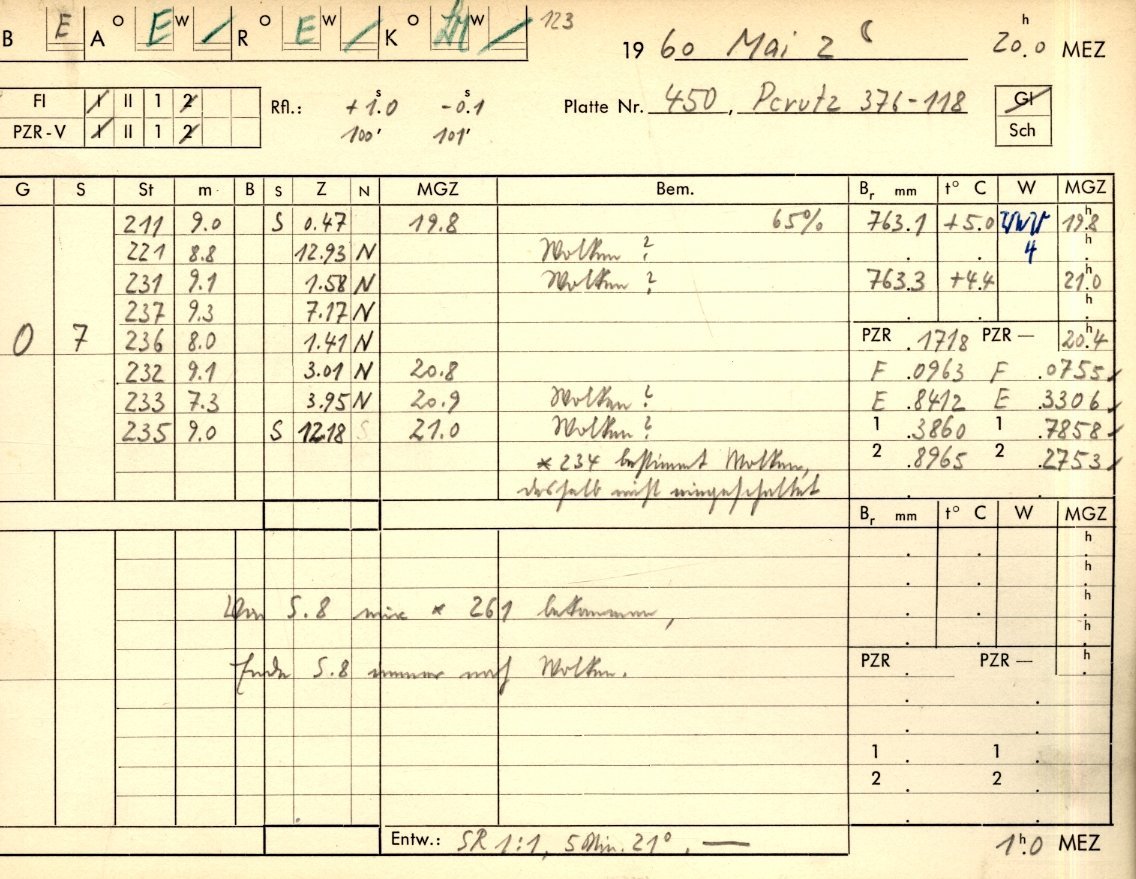 B E A O E W / R O E W / K O W / 123
1960 Mai 2 20.0 h MEZ
FI I II 1 2 Rfl.: +1.0 s -0.1 s Platte Nr. 450, Perutz 376-118 Gl
PZR-V I II 1 2 100' 101' Sch
G S St m B S Z N MGZ Bem. Br mm t° C W MGZ
211 9.0 S 0.47 19.8 65% 763.1 +5.0 19.8 h
221 8.8 12.93 N Wolken ? 4 h
231 9.1 1.58 N Wolken ? 763.3 +4.4 21.0 h
237 9.3 7.17 N h
0 7 236 8.0 1.41 N PZR .1718 PZR — 20.4 h
232 9.1 3.01 N 20.8 F .0963 F .0755
233 7.3 3.95 N 20.9 Wolken ? E .8412 E .3306
235 9.0 S 12.18 S 21.0 Wolken ? 1 .3860 1 .7858
* 234 bestimmt Wolken, 2 .8965 2 .2753
deshalb nicht eingeschaltet
Br mm t° C W MGZ
h
h
Von S.8 nur * 261 bekommen, h
h
Ende S.8 immer noch Wolken. PZR PZR — h
1 1
2 2
Entw.: SR 1:1, 5 Min. 21°, — 1 h.0 MEZ